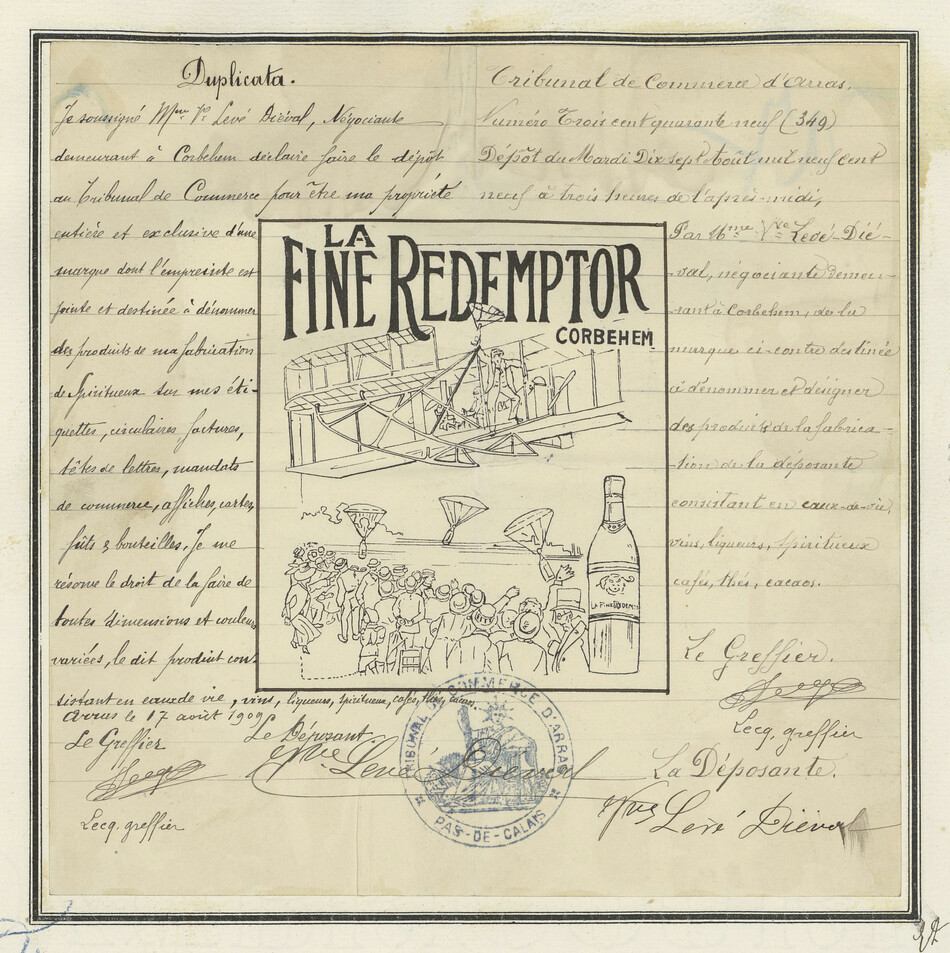 Duplicata.
Je soussigné Mme Ve Levé Diéval, Négociante
demeurant à Corbehem déclare faire le dépôt
au Tribunal de Commerce pour être ma propriété
entière et exclusive d'une
marque dont l'empreinte est
jointe et destinée à dénommer
des produits de ma fabrication
de Spiritueux sur mes éti-
quettes, circulaires, factures,
têtes de lettres, mandats
de commerce, affiches, cartes,
fûts & bouteilles. Je me
réserve le droit de la faire de
toutes dimensions et couleurs
variées, le dit produit con-
sistant en eaux de vie, vins, liqueurs, spiritueux, cafés, thés, cacaos.
Arras le 17 août 1909
Le Greffier
Le Déposant
Vve Levé Diéval
Lecq, greffier
LA
FINE REDEMPTOR
CORBEHEM
LA FINE
TRIBUNAL DE COMMERCE D'ARRAS
PAS-DE-CALAIS
Tribunal de Commerce d'Arras.
Numéro Trois cent quarante neuf (349)
Dépôt du Mardi Dix sept Août mil neuf cent
neuf à trois heures de l'après-midi,
Par Mme Vve Levé-Dié-
-val, négociante demeu-
-rant à Corbehem, de la
marque ci-contre destinée
à dénommer et désigner
des produits de la fabrica-
-tion de la déposante
consistant en eaux-de-vie,
vins, liqueurs, spiritueux
cafés, thés, cacaos.
Le Greffier.
Lecq, greffier
La Déposante.
Vve Levé Diéval